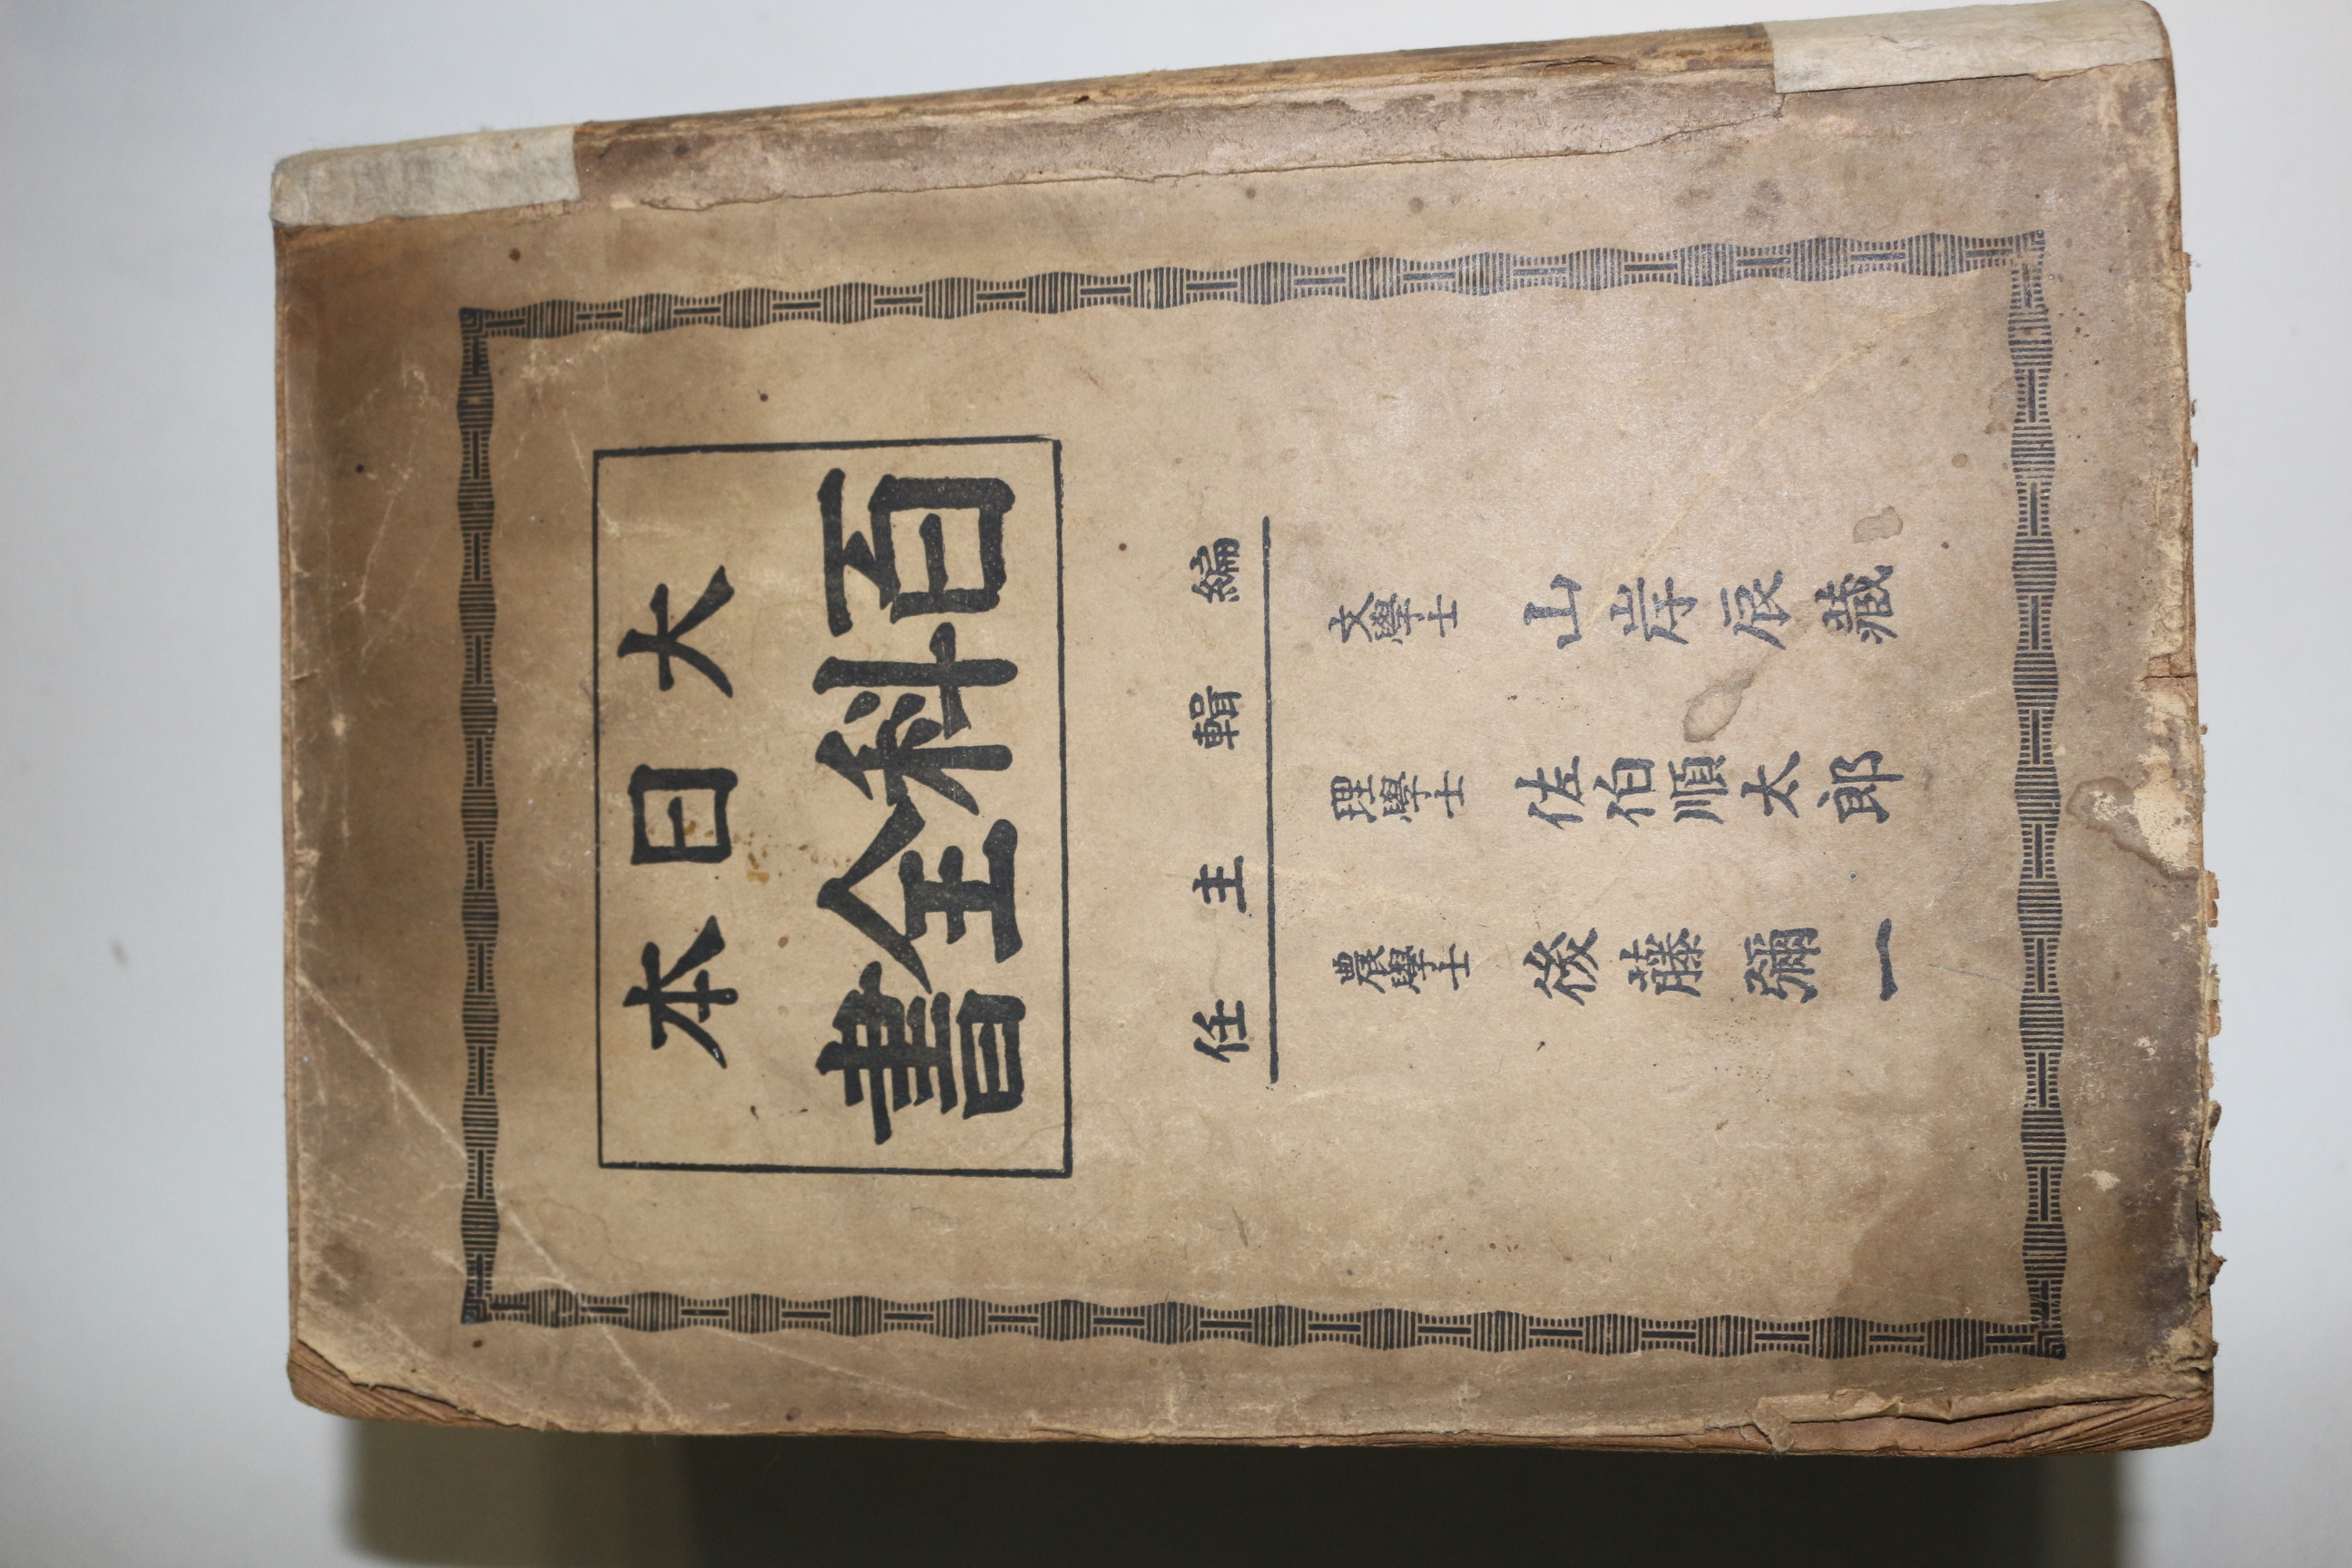 大日本
百科全書
編輯主任
文學士 山岸辰藏
理學士 佐伯順太郎
農學士 後藤彌一